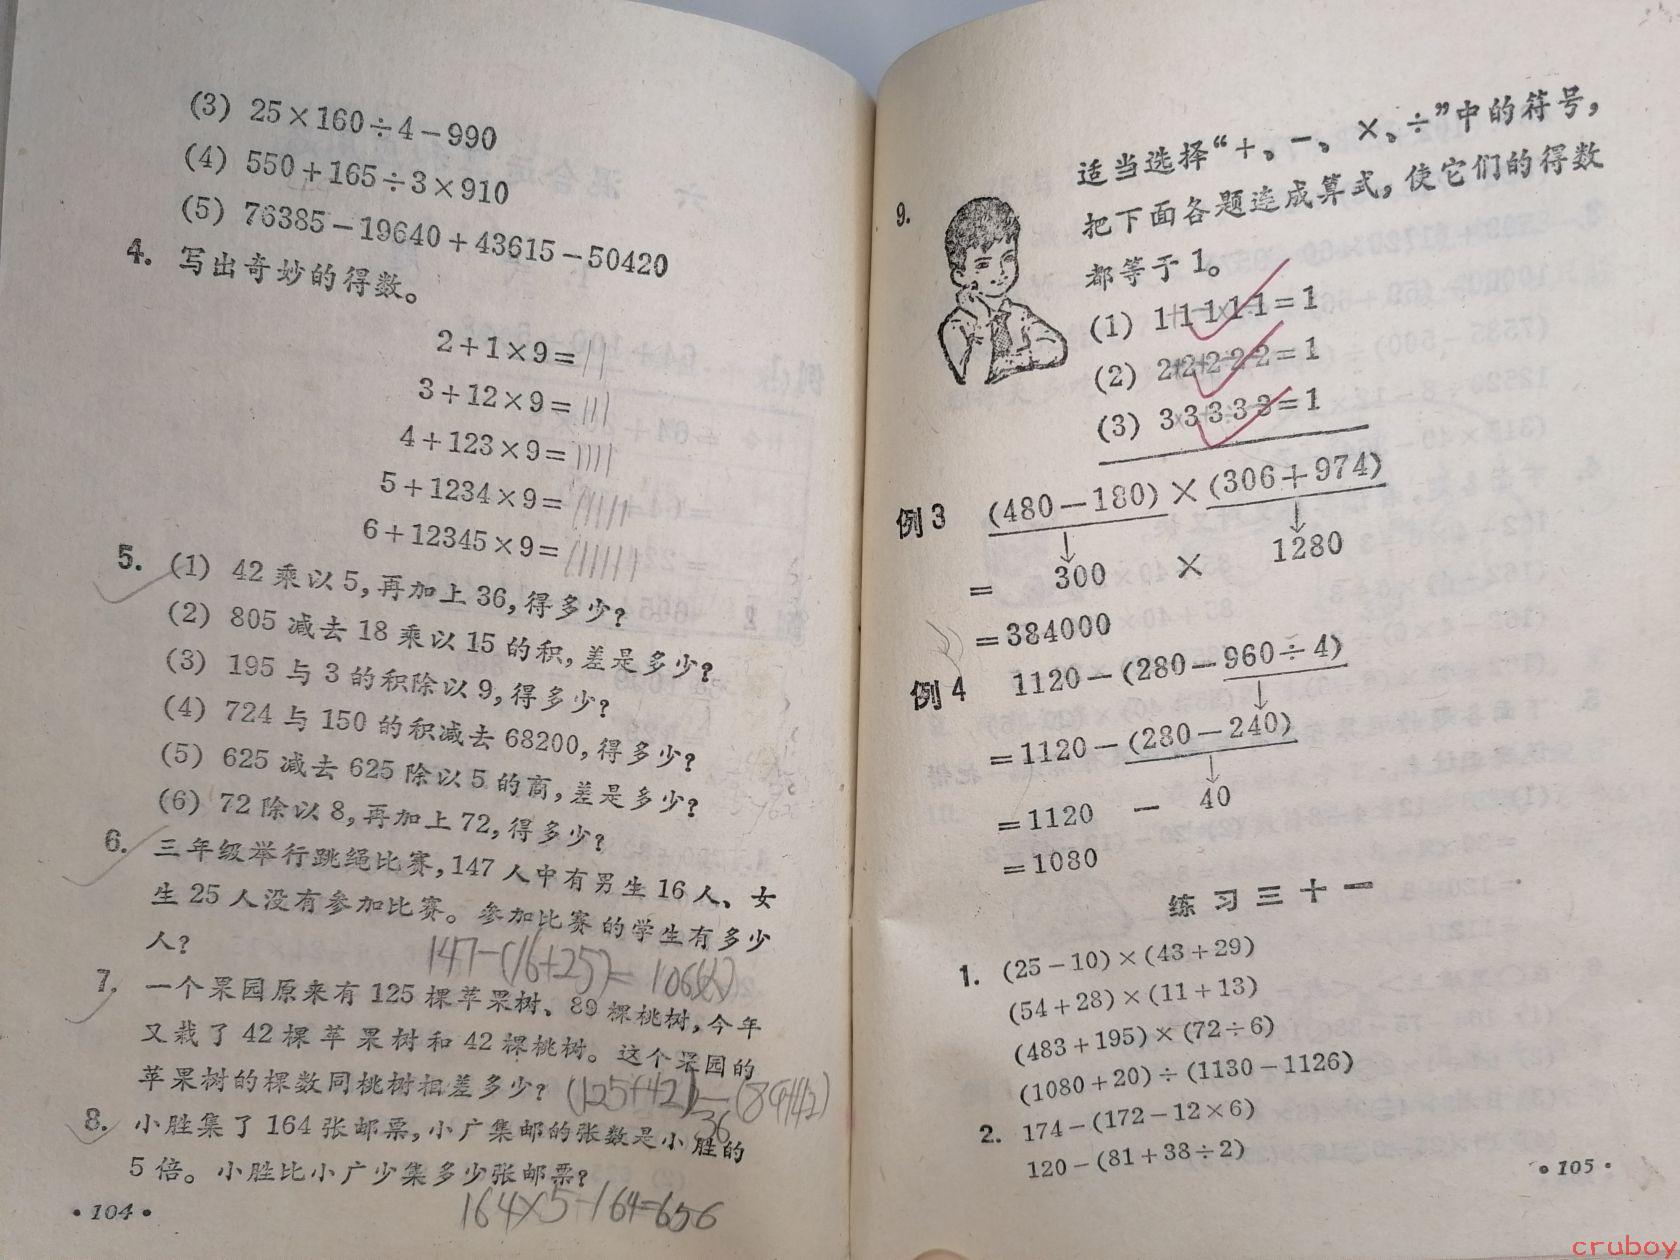 (3) 25×160÷4－990
(4) 550＋165÷3×910
(5) 76385－19640＋43615－50420
4. 写出奇妙的得数。
2＋1×9＝11
3＋12×9＝111
4＋123×9＝1111
5＋1234×9＝11111
6＋12345×9＝111111
5. (1) 42乘以5,再加上36,得多少?
(2) 805减去18乘以15的积,差是多少?
(3) 195与3的积除以9,得多少?
(4) 724与150的积减去68200,得多少?
(5) 625减去625除以5的商,差是多少?
(6) 72除以8,再加上72,得多少?
6. 三年级举行跳绳比赛,147人中有男生16人、女
生25人没有参加比赛。参加比赛的学生有多少
人?
147-(16+25)=106(人)
7. 一个果园原来有125棵苹果树、89棵桃树,今年
又栽了42棵苹果树和42棵桃树。这个果园的
苹果树的棵数同桃树相差多少? (125+42)-(89+42)
36
8. 小胜集了164张邮票,小广集邮的张数是小胜的
5倍。小胜比小广少集多少张邮票?
164×5-164=656
•104•
9. 适当选择“＋、－、×、÷”中的符号,
把下面各题连成算式,使它们的得数
都等于1。
(1) 1 1 1 1 1＝1
(2) 2 2 2 2 2＝1
(3) 3 3 3 3 3＝1
例3 (480－180)×(306＋974)
＝ 300 × 1280
＝384000
例4 1120－(280－960÷4)
＝1120－(280－240)
＝1120 － 40
＝1080
练习三十一
1. (25－10)×(43＋29)
(54＋28)×(11＋13)
(483＋195)×(72÷6)
(1080＋20)÷(1130－1126)
2. 174－(172－12×6)
120－(81＋38÷2)
•105•
cruboy